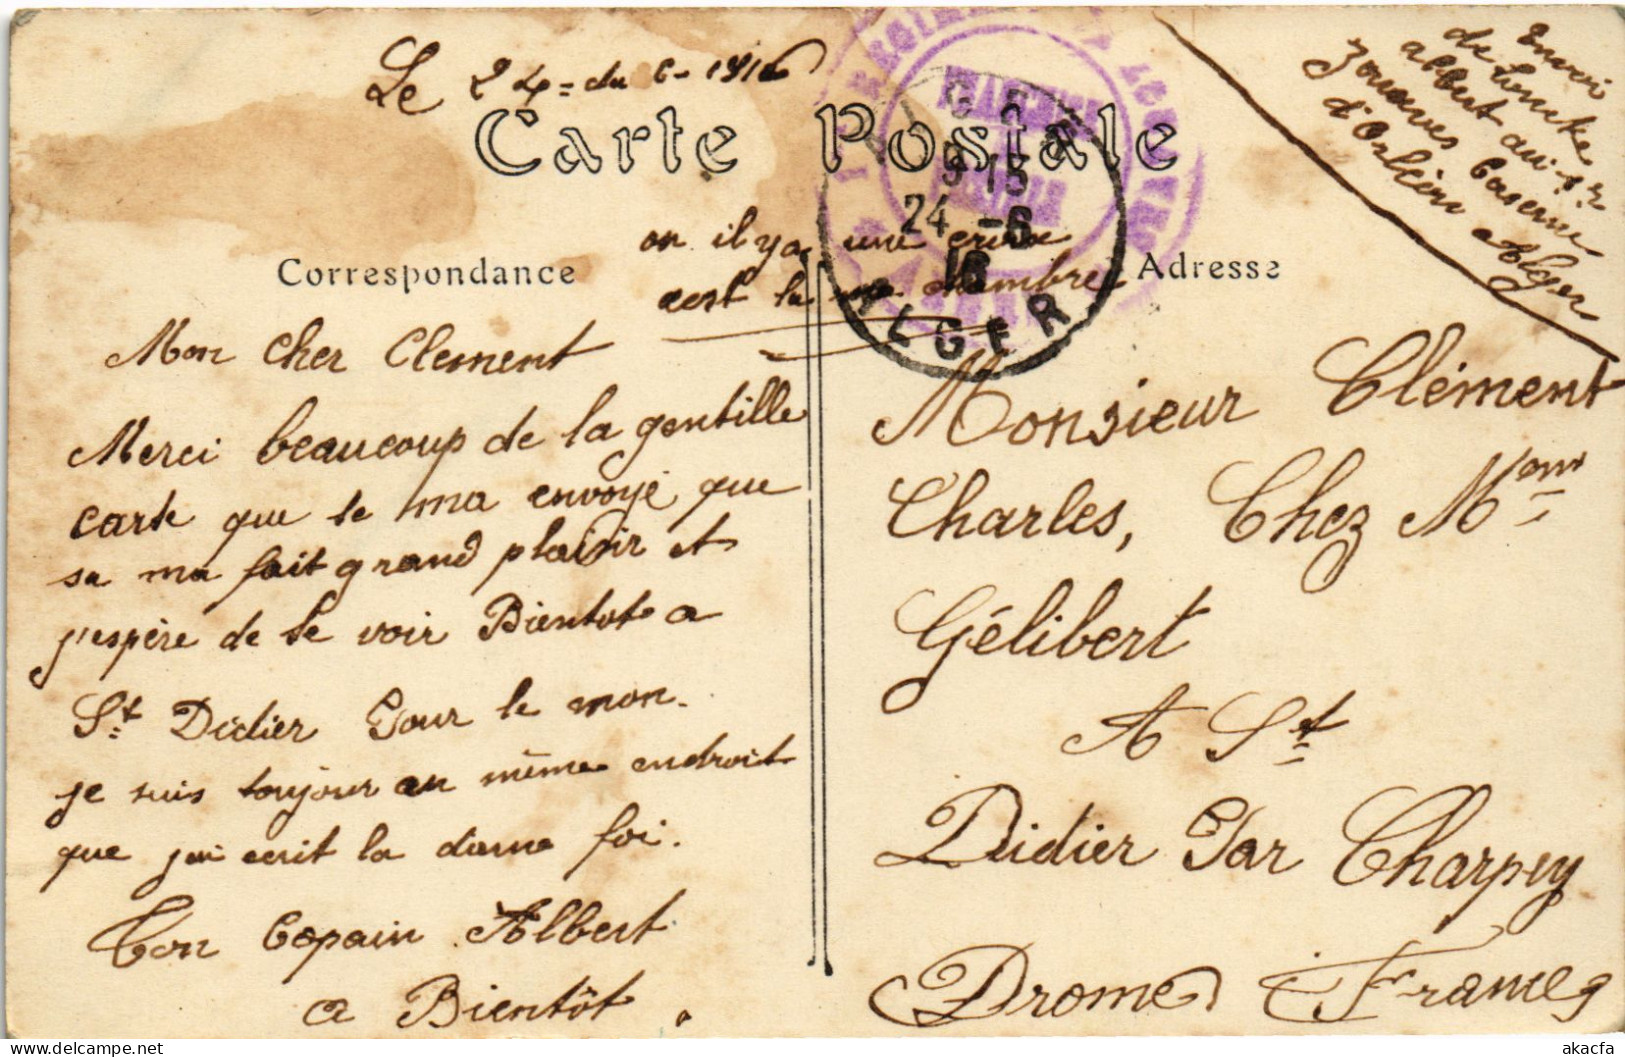 Le 24 = du 6 - 1916
Carte Postale
on il y a une croix
cest la ma chambre
Correspondance
Adresse
Envoi
de
albert au 1er
Zouaves Caserne
d'Orléan Alger
ALGER
9 15
24 - 6
16
ALGER
Mon Cher Clement
Merci beaucoup de la gentille
carte que te ma envoyé que
sa ma fait grand plaisir et
j'espère de te voir Bientot a
St Didier Pour le mon.
je suis toujour au même endroit
que jai ecrit la darne foi.
Ton Copain Albert
a Bientôt.
Monsieur Clément
Charles, Chez Mme
Gélibert
A St
Didier Par Charpey
Drome France
akacfa